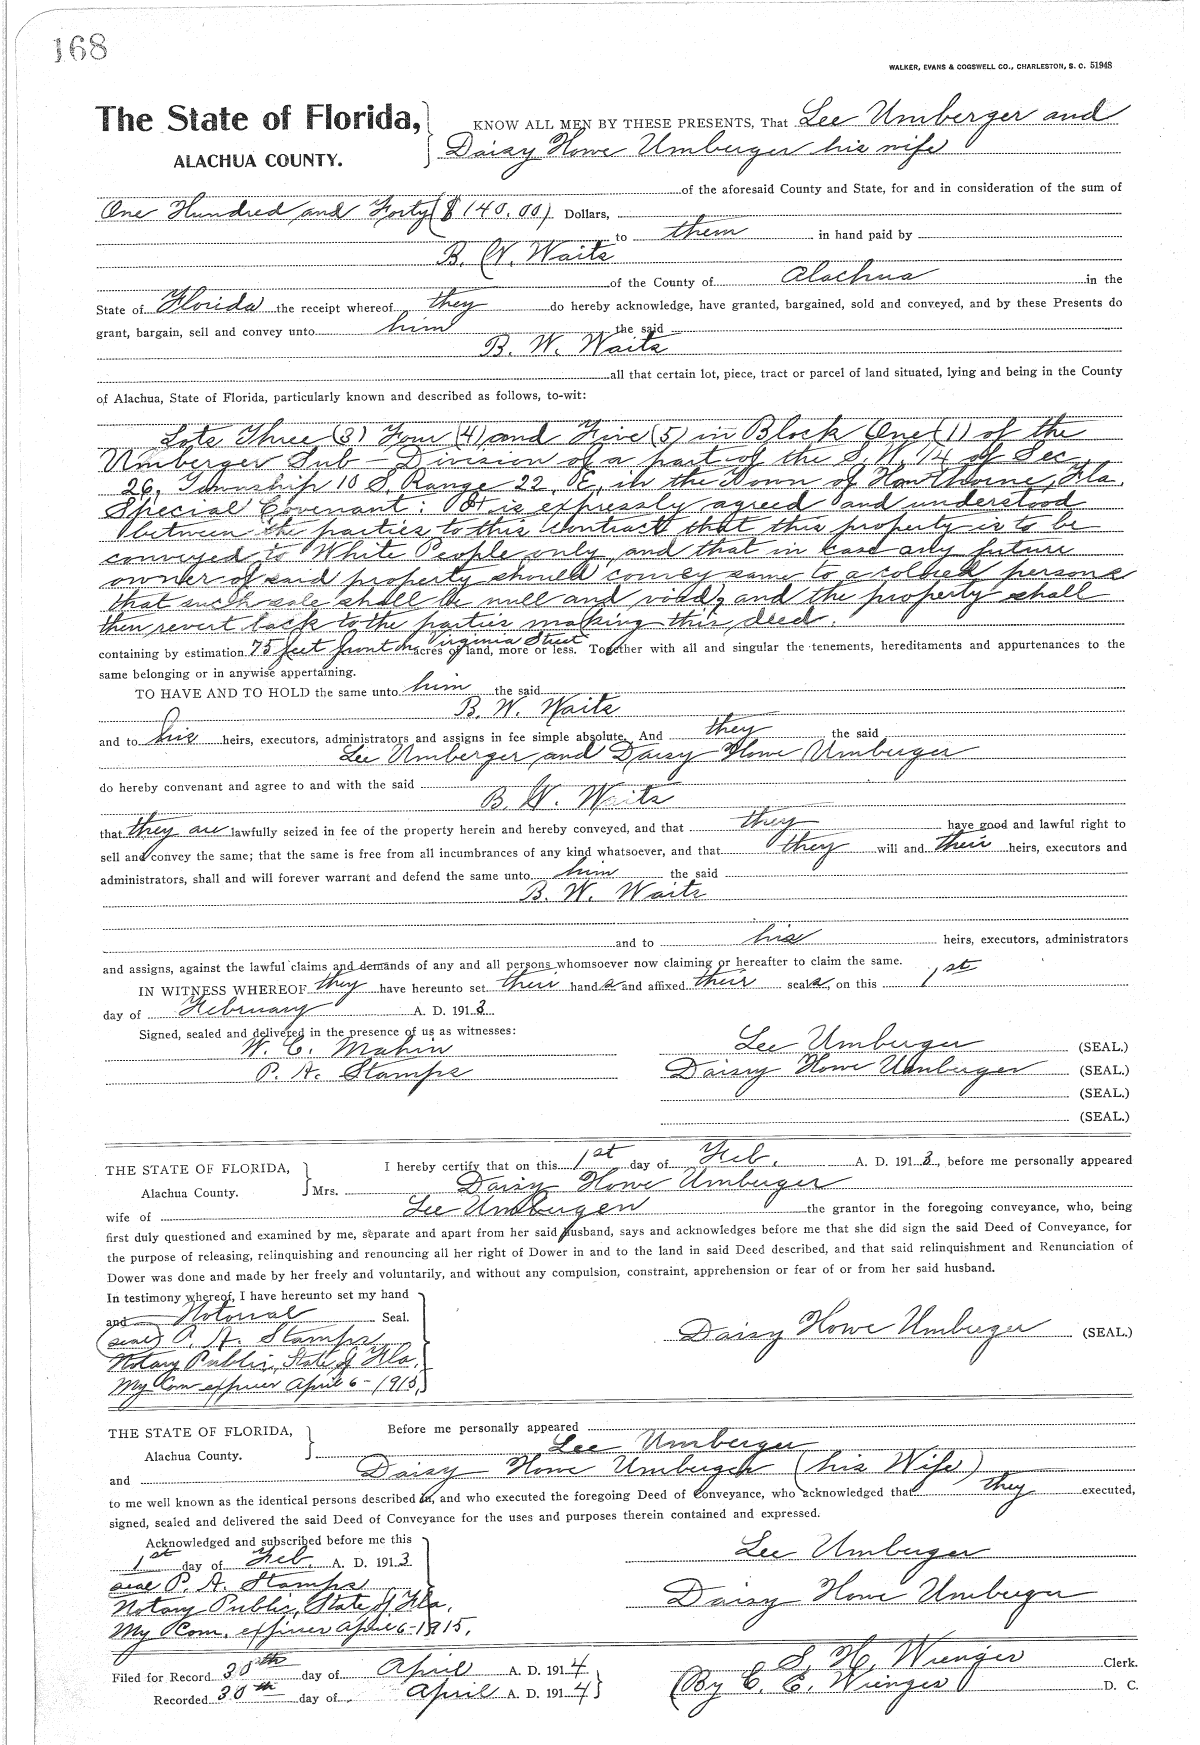 168
WALKER, EVANS & COGSWELL CO., CHARLESTON, S. C. 51948
The State of Florida,
ALACHUA COUNTY.
KNOW ALL MEN BY THESE PRESENTS, That Lee Umberger and
Daisy Howe Umberger his wife
of the aforesaid County and State, for and in consideration of the sum of
One Hundred and Forty ($140.00) Dollars,
to them in hand paid by
B. W. Waits
of the County of Alachua in the
State of Florida the receipt whereof they do hereby acknowledge, have granted, bargained, sold and conveyed, and by these Presents do
grant, bargain, sell and convey unto him the said
B. W. Waits
all that certain lot, piece, tract or parcel of land situated, lying and being in the County
of Alachua, State of Florida, particularly known and described as follows, to-wit:
Lots Three (3) Four (4) and Five (5) in Block One (1) of the
Umberger Sub-Division of a part of the S.W. 1/4 of Sec
26, Township 10 S. Range 22. E, in the Town of Hawthorne, Fla.
Special Covenant: It is expressly agreed and understood
between the parties to this contract that this property is to be
conveyed to White People only, and that in case any future
owner of said property should convey same to a colored persons
that such sale shall be null and void, and the property shall
then revert back to the parties making this deed.
containing by estimation 75 feet front on Virginia Street acres of land, more or less. Together with all and singular the tenements, hereditaments and appurtenances to the
same belonging or in anywise appertaining.
TO HAVE AND TO HOLD the same unto him the said
B. W. Waits
and to his heirs, executors, administrators and assigns in fee simple absolute. And they the said
Lee Umberger and Daisy Howe Umberger
do hereby convenant and agree to and with the said
B. W. Waits
that they are lawfully seized in fee of the property herein and hereby conveyed, and that they have good and lawful right to
sell and convey the same; that the same is free from all incumbrances of any kind whatsoever, and that they will and their heirs, executors and
administrators, shall and will forever warrant and defend the same unto him the said
B. W. Waits
and to his heirs, executors, administrators
and assigns, against the lawful claims and demands of any and all persons whomsoever now claiming or hereafter to claim the same.
IN WITNESS WHEREOF they have hereunto set their hands and affixed their seals, on this 1st
day of February A. D. 1913
Signed, sealed and delivered in the presence of us as witnesses:
W. C. Mahin
P. A. Stamps
Lee Umberger (SEAL.)
Daisy Howe Umberger (SEAL.)
(SEAL.)
(SEAL.)
THE STATE OF FLORIDA,
Alachua County.
I hereby certify that on this 1st day of Feb. A. D. 1913, before me personally appeared
Mrs. Daisy Howe Umberger
wife of Lee Umberger the grantor in the foregoing conveyance, who, being
first duly questioned and examined by me, separate and apart from her said husband, says and acknowledges before me that she did sign the said Deed of Conveyance, for
the purpose of releasing, relinquishing and renouncing all her right of Dower in and to the land in said Deed described, and that said relinquishment and Renunciation of
Dower was done and made by her freely and voluntarily, and without any compulsion, constraint, apprehension or fear of or from her said husband.
In testimony whereof, I have hereunto set my hand
and Notorial Seal.
(seal) P. A. Stamps
Notary Public, State of Fla.
My Com expires April 6-1915,
Daisy Howe Umberger (SEAL.)
THE STATE OF FLORIDA,
Alachua County.
Before me personally appeared
Lee Umberger
and Daisy Howe Umberger (his Wife)
to me well known as the identical persons described in, and who executed the foregoing Deed of Conveyance, who acknowledged that they executed,
signed, sealed and delivered the said Deed of Conveyance for the uses and purposes therein contained and expressed.
Acknowledged and subscribed before me this
1st day of Feb. A. D. 1913
seal P. A. Stamps
Notary Public, State of Fla.
My Com. expires April 6-1915.
Lee Umberger
Daisy Howe Umberger
Filed for Record 30th day of April A. D. 1914
Recorded 30th day of April A. D. 1914
S. H. Wienges Clerk.
(By C. E. Wienges D. C.